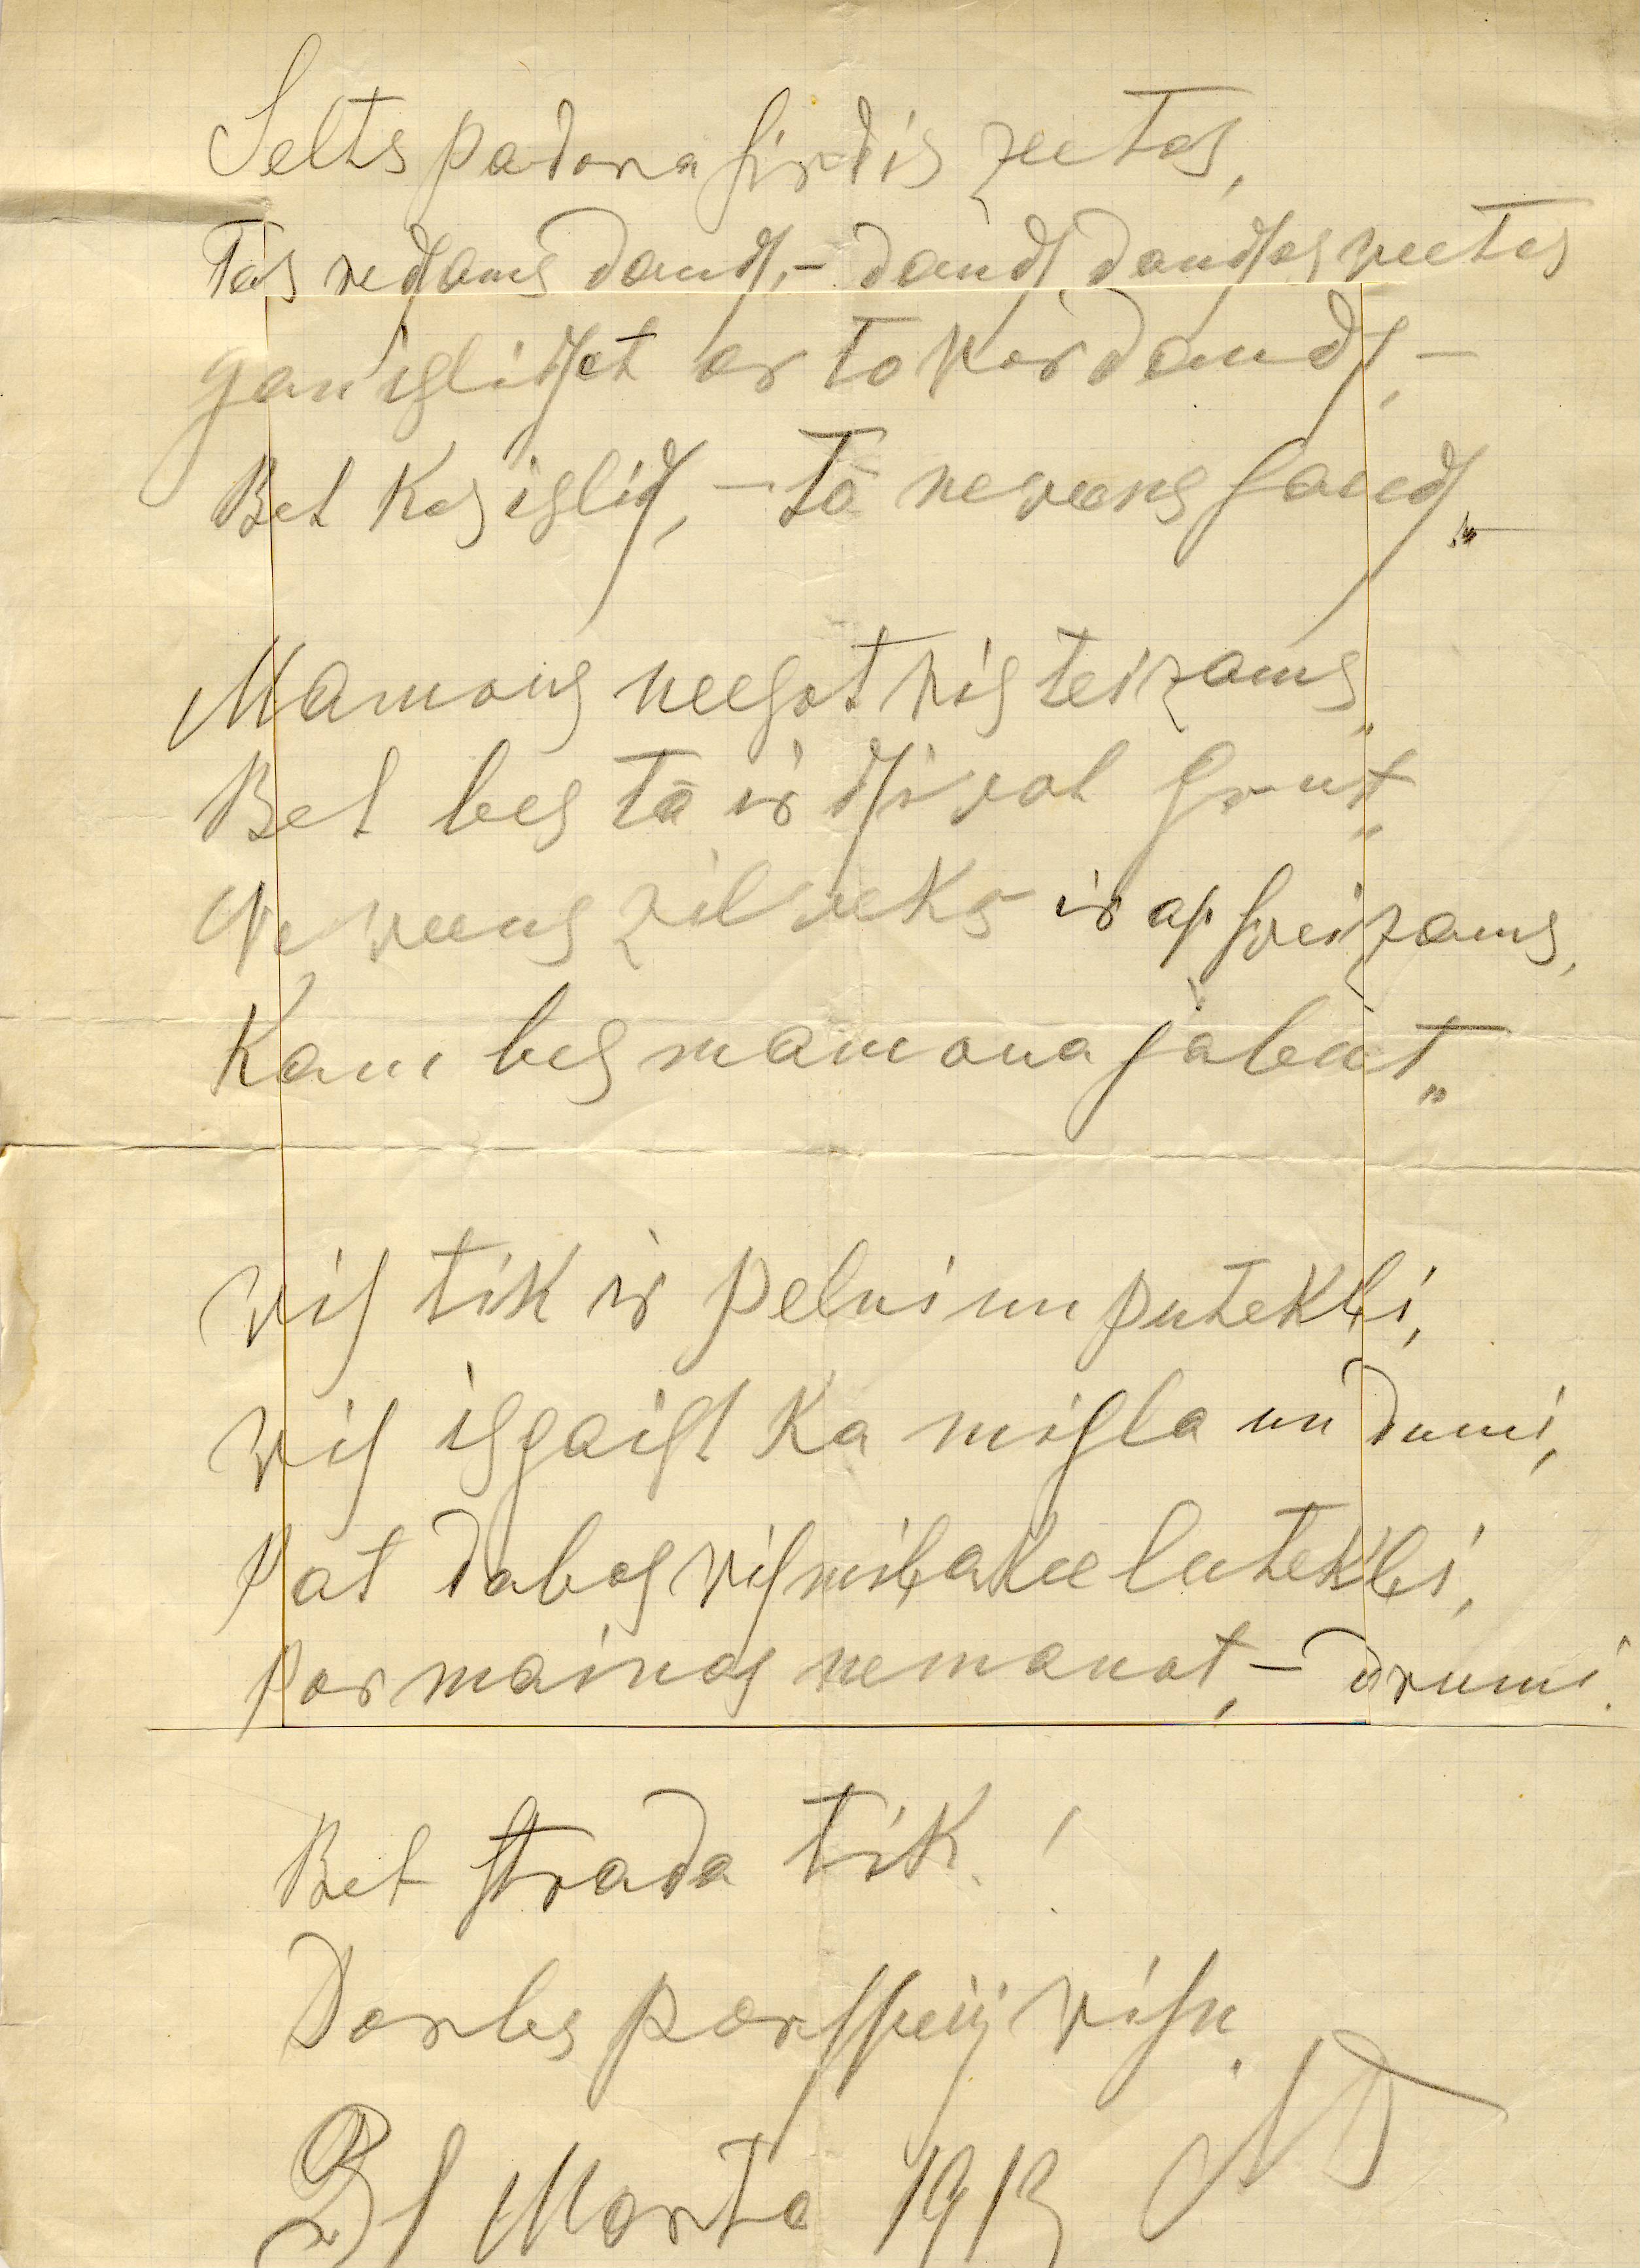 Selts padara ſirdis zeetas,
Tas redſams daudſ, – daudſ daudſas weetas
gan islidſet ar to war daudſ, –
Bet kas islidſ, – tā neweens ſaudſ„
Mamons neesot wis teizams„
Bet bes tā ir dſiwot grut„
Ne weens zilweks ir apſweizams,
Kam bes mamona jabūt„
Wiſ tik ir pelni un putekłi,
Wiſ isgaiſt ka migla un dumi,
Pat dabas wiſmiłakee lutekłi,
Par mainas nemanot, – drumi.
Bet ſtrada tik!
Darbs parſpeij wiſu.
Marta 1913